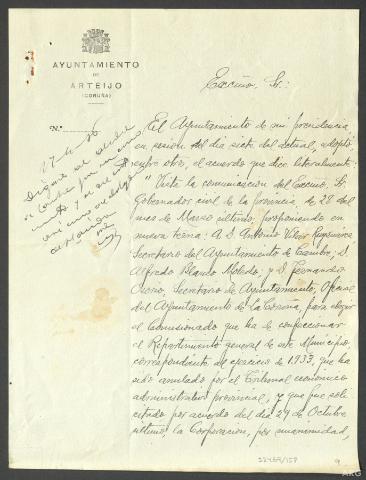 AYUNTAMIENTO
DE
ARTEIJO
(CORUÑA)
Nº
17-4-36
Excmo. Sr.
El Ayuntamiento de mi presidencia,
en sesión del día siete del actual, adoptó,
entre otros, el acuerdo que dice literalmente:
"Vista la comunicación del Excmo. Sr.
Gobernador civil de la provincia, de 28 del
mes de Marzo último, proponiendo en
nueva terna: A D. Antonio
Secretario del Ayuntamiento de Cambre, D.
Alfredo Blanco Moledo, y D. Fernando
Osorio, Secretario de Ayuntamiento, Oficial
del Ayuntamiento de La Coruña, para elegir
el Comisionado que ha de confeccionar
el Repartimiento general de este Municipio,
correspondiente al ejercicio de 1.933, que ha
sido anulado por el Tribunal económico
administrativo provincial, y que fué soli-
citado por acuerdo del día 29 de Octubre
último, la Corporación, por unanimidad,
32469/157
9
ARG